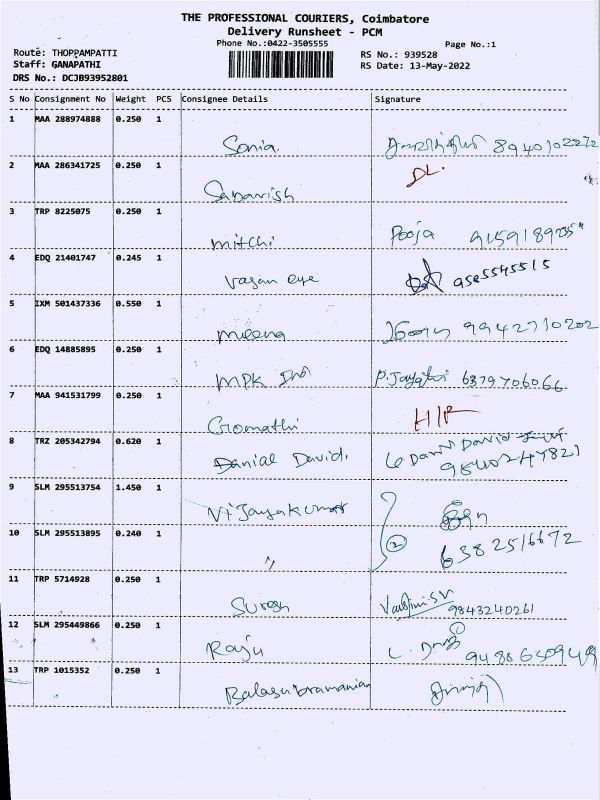 THE PROFESSIONAL COURIERS, Coimbatore
Delivery Runsheet - PCM
Phone No.:0422-3505555
Page No.:1
Route: THOPPAMPATTI
RS No.: 939528
Staff: GANAPATHI
RS Date: 13-May-2022
DRS No.: DCJB93952801
S No Consignment No Weight PCS Consignee Details Signature
1 MAA 288974888 0.250 1
Sonia. 8940102272
2 MAA 286341725 0.250 1
Sabarish DL.
3 TRP 8225075 0.250 1
mitchi Pooja
4 EDQ 21401747 0.245 1
vasan eye 9585545515
5 IXM 501437336 0.550 1
meena 9942710202
6 EDQ 14885895 0.250 1
MPK Ind P. Jayathi 6379706066
7 MAA 941531799 0.250 1
Gomathi
8 TRZ 205342794 0.620 1
Danial David. David
9 SLM 295513754 1.450 1
Vijayakumar
10 SLM 295513895 0.240 1
" 2 6382516672
11 TRP 5714928 0.250 1
Suresh 9843240261
12 SLM 295449866 0.250 1
Raju
13 TRP 1015352 0.250 1
Balasubramanian